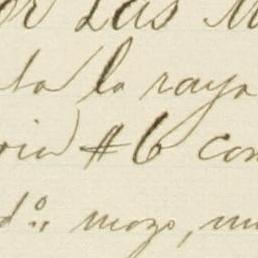 or Las M
ta la raya
oria #6 con
d.º mozo, m